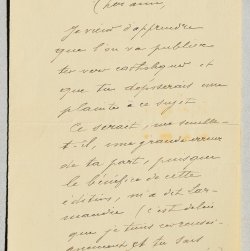 Cher ami,
Je viens d'apprendre
que l'on va publier
tes vers catholiques et
que tu déposerais une
plainte à ce sujet
Ce serait, me semble-
t-il, une grande erreur
de ta part, puisque
le bénéfice de cette
édition, m'a dit Car-
(c'est de lui
que je tiens ce rensei-
gnement et tu sais